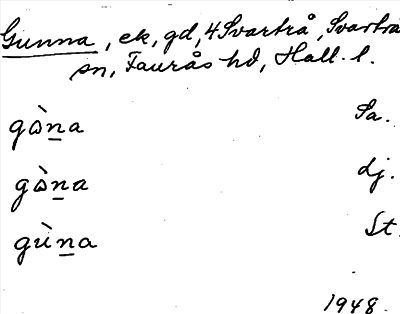 Gunna, ek, gd, 4 Svartrå, Svartrå
sn, Faurås hd, Hall. l.
gὼn̲a Sa.
gὼn̲a dj.
gùn̲a St.
1948